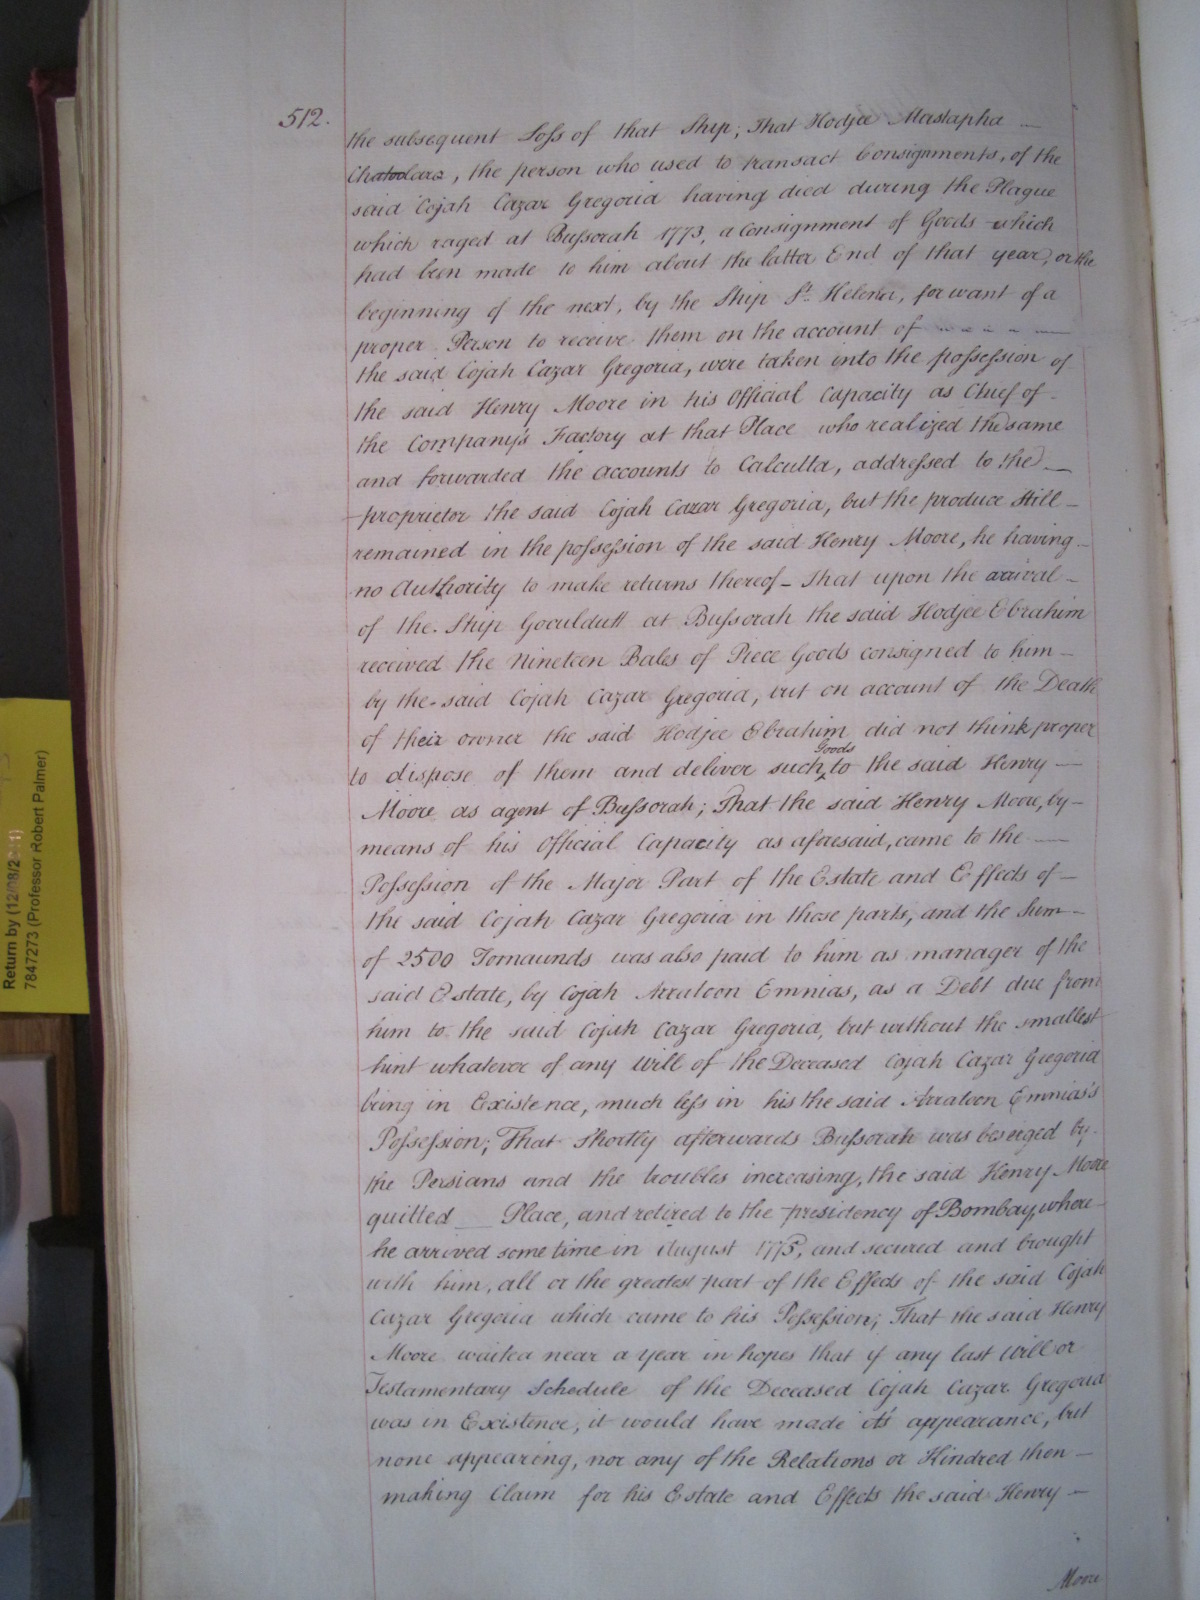 512.
the subsequent Loss of that Ship; That Hodjee Mustapha —
, the person who used to transact Consignments, of the
said Cojah Cazar Gregoria having died during the Plague
which raged at Bussorah 1773, a Consignment of Goods which
had been made to him about the latter End of that year, or the
beginning of the next, by the Ship St. Helena, for want of a
proper Person to receive them on the account of — — — —
the said Cojah Cazar Gregoria, were taken into the possession of
the said Henry Moore in his Official Capacity as Chief of -
the Company's Factory at that Place who realized the same
and forwarded the accounts to Calcutta, addressed to the —
proprietor the said Cojah Cazar Gregoria, but the produce still -
remained in the possession of the said Henry Moore, he having -
no Authority to make returns thereof - That upon the arrival -
of the Ship Goculdutt at Bussorah the said Hodjee Ebrahim
received the Nineteen Bales of Piece Goods consigned to him -
by the said Cojah Cazar Gregoria, but on account of the Death
of their owner the said Hodjee Ebrahim did not think proper
to dispose of them and deliver such Goods to the said Henry —
Moore as agent of Bussorah; That the said Henry Moore, by -
means of his Official Capacity as aforesaid, came to the —
Possession of the Major Part of the Estate and Effects of -
the said Cojah Cazar Gregoria in those parts, and the Sum -
of 2500 Tomaunds was also paid to him as manager of the
said Estate, by Cojah Arratoon Emnias, as a Debt due from
him to the said Cojah Cazar Gregoria, but without the smallest
hint whatever of any Will of the Deceased Cojah Cazar Gregoria
being in Existence, much less in his the said Arratoon Emnias's
Possession; That Shortly afterwards Bussorah was beseiged by -
the Persians and the troubles increasing, the said Henry Moore
quitted — Place, and retired to the presidency of Bombay, where -
he arrived some time in August 1775, and secured and brought
with him, all or the greatest part of the Effects of the said Cojah
Cazar Gregoria which came to his Possession; That the said Henry
Moore waited near a year in hopes that if any last Will or
Testamentary Schedule of the Deceased Cojah Cazar Gregoria
was in Existence, it would have made it's appearance, but
none appearing, nor any of the Relations or Kindred then -
making Claim for his Estate and Effects the said Henry -
Moore
Return by
7847273 (Professor Robert Palmer)